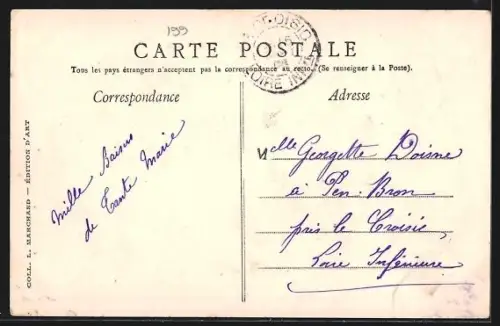 199
CARTE POSTALE
Tous les pays étrangers n'acceptent pas la correspondance au recto. (Se renseigner à la Poste).
Correspondance
Adresse
Mille Baisers
de Tante Marie
Melle Georgette Doisne
à Pen-Bron
près le Croisic
Loire Inférieure
COLL. L. MARCHAND — ÉDITION D'ART
LOIRE INFRE